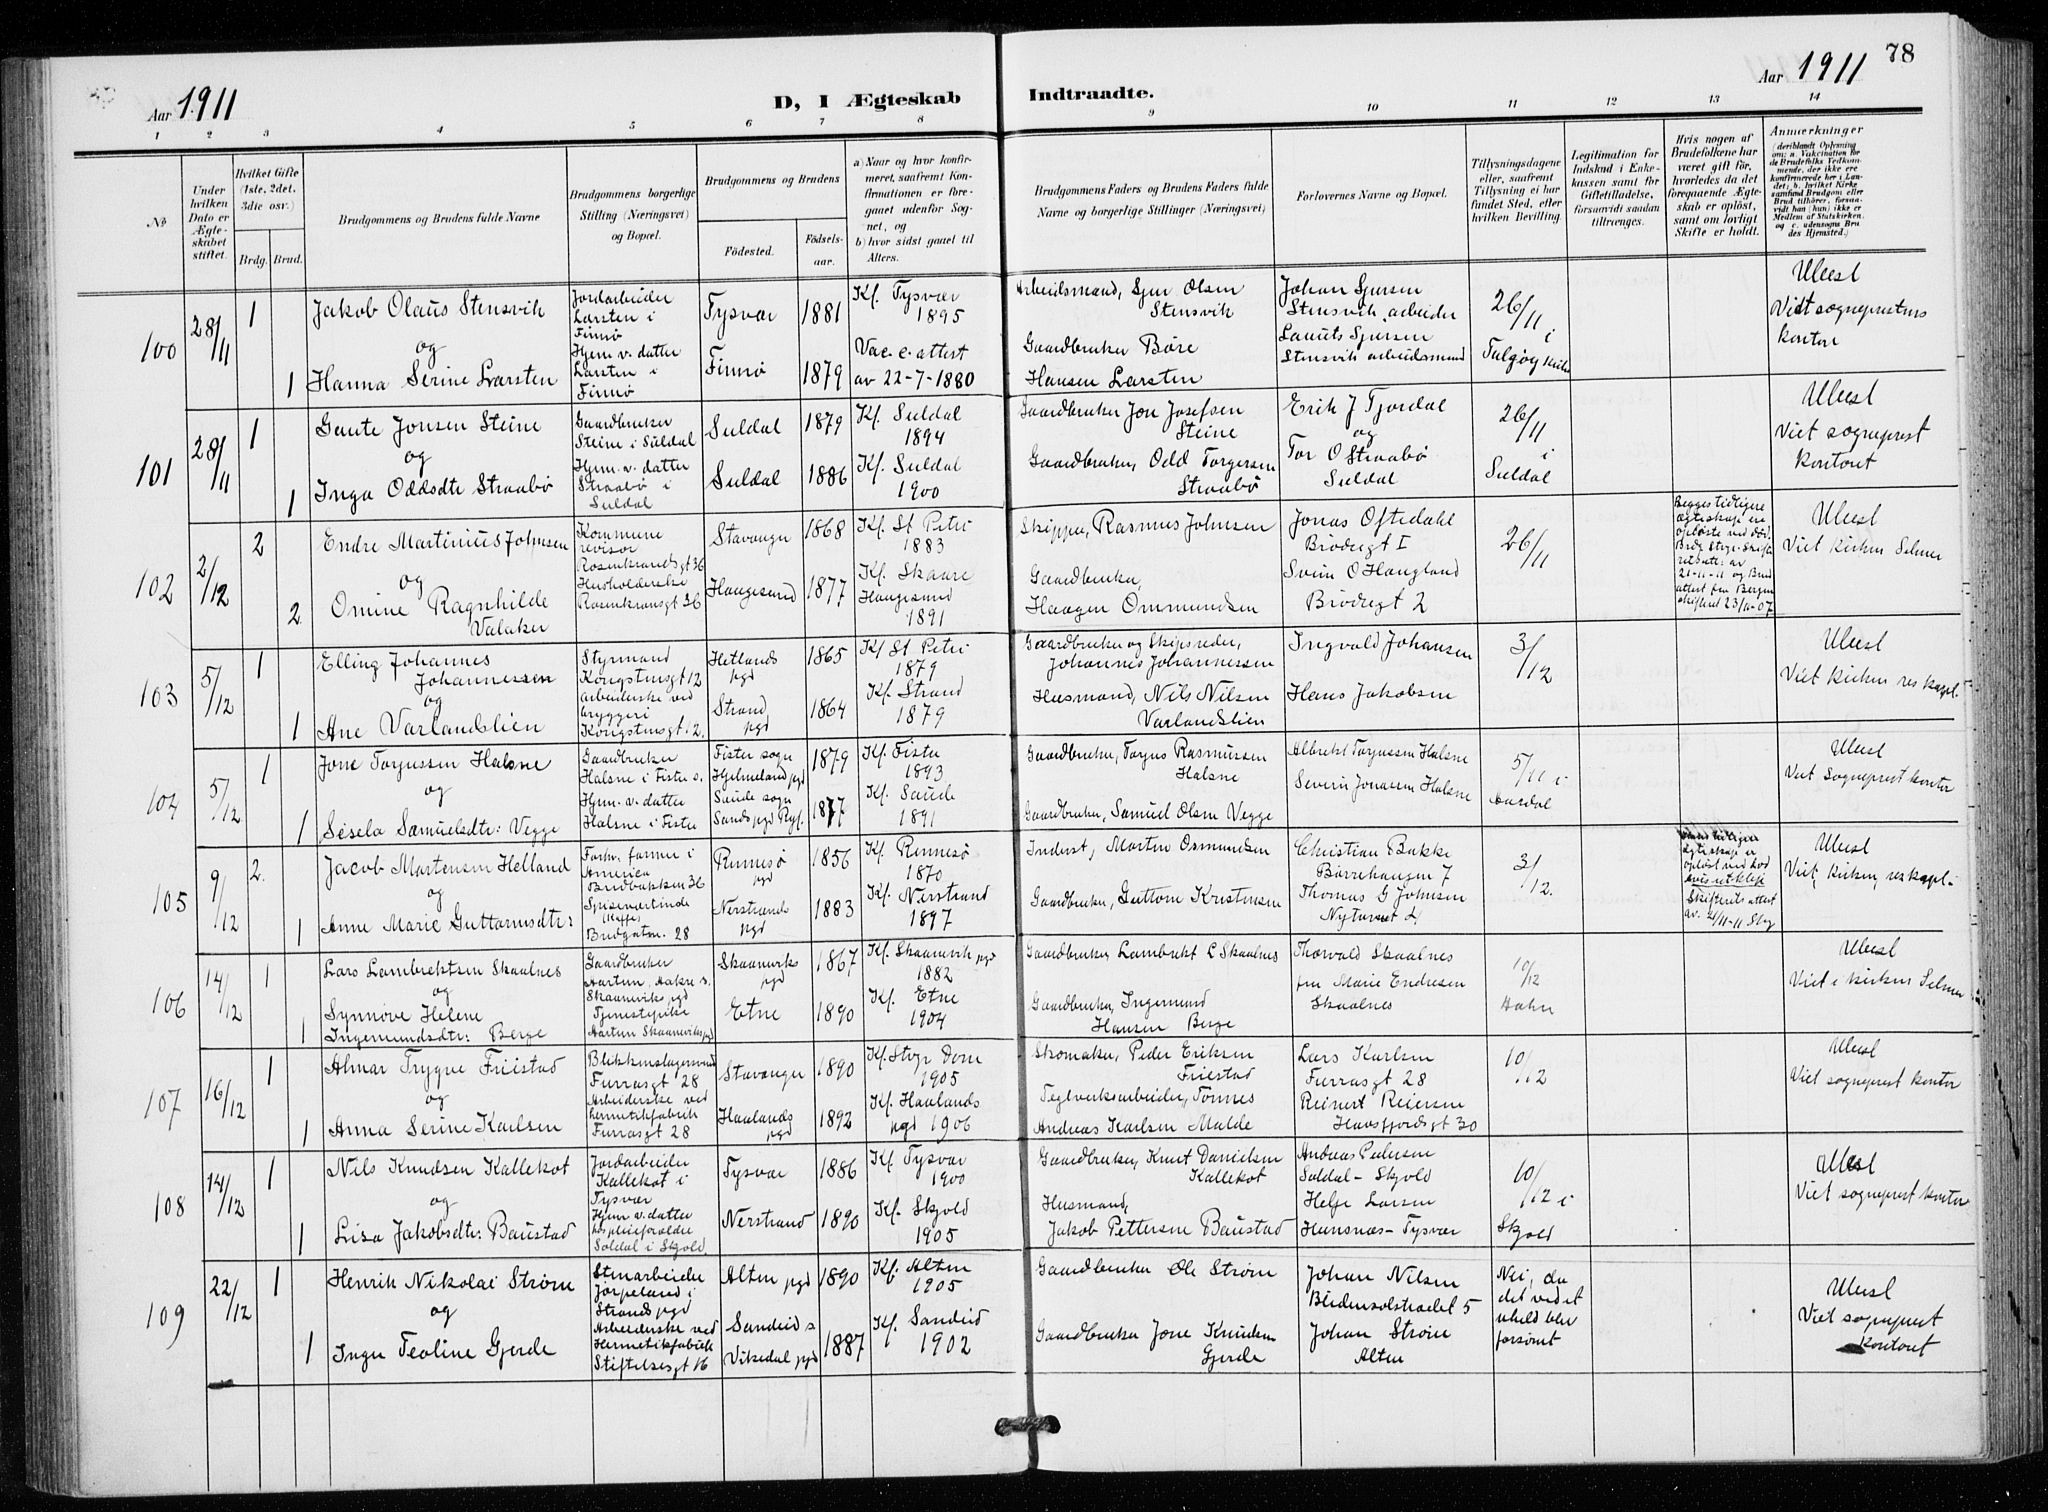 78
Aar 1911
D, I Ægteskab
Indtraadte.
Aar 1911
1 2 3 4 5 6 7 8 9 10 11 12 13 14
No
Under hvilken Dato er Ægteskabet stiftet.
Hvilket Gifte (1ste, 2det, 3die osv.)
Brdg. Brud.
Brudgommens og Brudens fulde Navne
Brudgommens borgerlige Stilling (Næringsvei) og Bopæl.
Brudgommens og Brudens
Födested.
Födselsaar.
a) Naar og hvor konfirmeret, saafremt Konfirmationen er foregaaet udenfor Sognet, og
b) hvor sidst gaaet til Alters.
Brudgommens Faders og Brudens Faders fulde Navne og borgerlige Stillinger (Næringsvei)
Forlovernes Navne og Bopæl.
Tillysningsdagene eller, saafremt Tillysning ei har fundet Sted, efter hvilken Bevilling.
Legitimation for Indskud i Enkekassen samt for Giftetilladelse, forsaavidt saadan tiltrænges.
Hvis nogen af Brudefolkene har været gift før, hvorledes da det foregaaende Ægteskab er opløst, samt om lovligt Skifte er holdt.
Anmerkninger (deriblandt Oplysning om: a. Vakcination for de Brudefolks Vedkommende, der ikke ere konfirmerede her i Landet; b. hvilket Kirkesamfund Brudgom eller Brud tilhører, forsaavidt han (hun) ikke er Medlem af Statskirken, og c. udensogns Brudes Hjemsted.)
100
28/11
1
Jakob Olaus Stensvik
og
1 Hanna Serine Larsten
Jordarbeider
Larsten i
Finnø
Hjem. v. datter
Larsten i
Finnø
Tysvær 1881
Finnø 1879
Kf. Tysvær
1895
Vac. c. attest
av 22-7-1880
Arbeidsmand, Sjur Olsen
Stensvik
Gaardbruker Børe
Hansen Larsten
Johan Sjursen
Stensvik, arbeider
Lauuts Sjursen
Stensvik arbeidsmand
26/11
i
Talgøy kirke
Uleest
Viet sogneprestens
kontor
101
28/11
1
Gaute Jonsen Steine
og
1 Inga Oddsdtr Straabø
Gaardbruker
Steine i Suldal
Hjem. v. datter
Straabø i
Suldal
Suldal 1879
Suldal 1886
Kf. Suldal
1894
Kf. Suldal
1900
Gaardbruker Jon Josefsen
Steine
Gaardbruker, Odd Torgersen
Straabø
Erik J Tjordal
og
Tor O Straabø
Suldal
26/11
i
Suldal
Uleest
Viet sogneprest
kontoret
102
2/12
2
Endre Martinius Johnsen
og
2. Omine Ragnhilde
Valaker
Kommune
revisor
Rosenkrandsgt 36
Husholderske
Rosenkransgt 36
Stavanger 1868
Haugesund 1877
Kf. St Petri
1883
Kf. Skaare
Haugesund
1891
Skipper, Rasmus Johnsen
Gaardbruker,
Haagen Ommundsen
Jonas Oftedahl
Brødregt I
Svein O Haugland
Brødregt 2
26/11
Begges tidligere
ægteskap er
opløste ved død.
Brdg Stvgr. Skifte
retsatt: av
21-11-11 og Brud
attest fra Bergen
skifteret 23/11-07
Uleest
Viet kirken Selmer
103
5/12
1
Elling Johannes
Johannessen
og
1 Ane Varlandslien
Styrmand
Kongstensgt 12
arbeiderske ved
bryggeri
Kongstensgt 12.
Hetlands
pgd 1865
Strand
pgd 1864
Kf St Petri
1879
Kf. Strand
1879
Gaardbruker og Skipsreder,
Johannes Johannessen
Husmand, Nils Nilsen
Varlandslien
Ingvald Johansen
Hans Jakobsen
3/12
Uleest
Viet kirken res kapl.
104
5/12
1
Jone Torgussen Halsne
og
1 Sesela Samuelsdtr: Vegge
Gaardbruker
Halsne i Fister s.
Hjem. v. datter
Halsne i Fister
Fister sogn
Hjelmeland pgd 1879
Saude sogn
Sands pgd Ryf. 1877
Kf. Fister
1893
Kf. Saude
1891
Gaardbruker, Torgus Rasmussen
Halsne
Gaardbruker, Samuel Olsen Vegge
Albrekt Torgussen Halsne
Severin Jonassen Halsne
5/11 i
Aardal
Uleest
Viet Sogneprest kontor
105
9/12
2.
Jacob Mortensen Helland
og
1 Anne Marie Guttormsdtr:
Forhv. farmer i
America
Bredbakken 36
Spisevertinde
Bredgaten. 28
Rennesø
pgd 1856
Nerstrands
pgd 1883
Kf. Rennesø
1870
Kf. Nerstrand
1897
Inderst, Morten Osmundsen
Gaardbruker, Guttorm Kristensen
Christian Bakke
Børrehaugen 7
Thomas G Johnsen
Nytorvet 4
3/12.
ægteskap er
opløst ved död
Skifterets attest
av. 21/11-11 Stvg
Uleest
Viet, kirken, res kapl.
106
14/12
1
Lars Lambrektsen Skaalnes
og
Synnøve Helene
1 Ingemundsdtr: Berge
Gaardbruker
Aarten, Aakre s.
Skaanevik pgd
Tjenestepike
Aarten Skaaneviks pgd
Skaaneviks
pgd 1867
Etne 1890
Kf. Skaanevik pgd
1882
Kf. Etne
1904
Gaardbruker, Lambrekt L Skaalnes
Gaardbruker, Ingemund
Hansen Berge
Thorvald Skaalnes
fru Marie Endresen
Skaalnes
10/12
Aakre
Uleest
Viet i kirken Selmer
107
16/12
1
Almar Trygve Friestad
og
1 Anna Serine Karlsen
Blikkenslagersvend
Furrasgt 28
Arbeiderske ved
hermetikfabrik
Furrasgt 28
Stavanger 1890
Haalands
pgd 1892
Kf. Stvgr Dom
1905
Kf. Haalands
pgd 1906
Skomaker, Peder Eriksen
Friestad
Teglverksarbeider, Tønnes
Andreas Karlsen Malde
Lars Karlsen
Furrasgt 28
Reinert Reiersen
Havsfjordsgt 30
10/12
Uleest
Viet sogneprest kontor
108
14/12
1
Nils Knudsen Kallekot
og
1 Lisa Jakobsdtr: Baustad
Jordarbeider
Kallekot i
Tysvær
Hjem v. datter
hos pleieforældre
Søldal i Skjold
Tysvær 1886
Nerstrand 1890
Kf. Tysvær
1900
Kf. Skjold
1905
Gaardbruker, Knut Danielsen
Kallekot
Husmand,
Jakob Pettersen Baustad
Andreas Pedersen
Søldal - Skjold
Helje Larsen
Hunsnæs - Tysvær
10/12 i
Skjold
Uleest
Viet sogneprest kontor
109
22/12
1
Henrik Nikolai Strøm
og
1 Inger Teoline Gjerde
Stenarbeider
Jørpeland i
Strands pgd
Arbeiderske ved
Hermetikfabrik
Stiftelsesgt 16
Alten pgd 1890
Sandeid s
Vikedal pgd 1887
Kf. Alten
1905
Kf. Sandeid
1902
Gaardbruker Ole Strøm
Gaardbruker Jone Knudsen
Gjerde
Johan Nilsen
Bledensolstrædet 5
Johan Strøm
Alten
Nei, da
det ved et
uheld blev
forsømt
Uleest
Viet sogneprest
kontoret